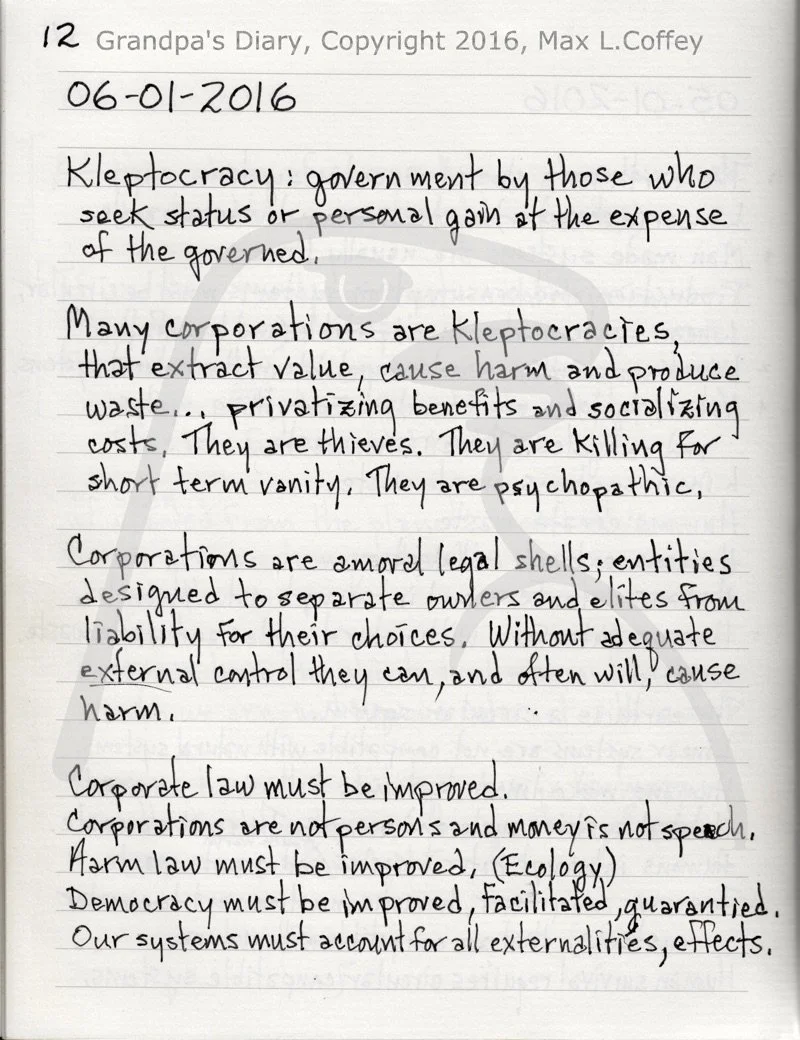 12 Grandpa's Diary, Copyright 2016, Max L.Coffey
06-01-2016
Kleptocracy: government by those who
seek status or personal gain at the expense
of the governed.
Many corporations are Kleptocracies,
that extract value, cause harm and produce
waste... privatizing benefits and socializing
costs. They are thieves. They are Killing For
short term vanity. They are psychopathic.
Corporations are amoral legal shells; entities
designed to separate owners and elites from
liability for their choices. Without adequate
external control they can, and often will, cause
harm.
Corporate law must be improved.
Corporations are not persons and money is not speech.
Harm law must be improved. (Ecology)
Democracy must be improved, facilitated, guarantied.
Our systems must account for all externalities, effects.